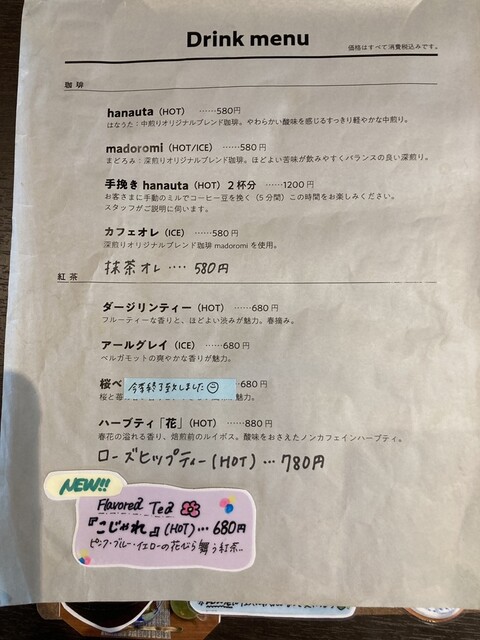 Drink menu
価格はすべて消費税込みです。
珈琲
hanauta（HOT）……580円
はなうた：中煎りオリジナルブレンド珈琲。やわらかい酸味を感じるすっきり軽やかな中煎り。
madoromi（HOT/ICE）……580円
まどろみ：深煎りオリジナルブレンド珈琲。ほどよい苦味が飲みやすくバランスの良い深煎り。
手挽き hanauta（HOT）２杯分……1200円
お客さまに手動のミルでコーヒー豆を挽く（5分間）この時間をお楽しみください。
スタッフがご説明に伺います。
カフェオレ（ICE）……580円
深煎りオリジナルブレンド珈琲 madoromi を使用。
抹茶オレ‥‥580円
紅茶
ダージリンティー（HOT）……680円
フルーティーな香りと、ほどよい渋みが魅力。春摘み。
アールグレイ（ICE）……680円
ベルガモットの爽やかな香りが魅力。
桜べ 今季終了致しました 680円
桜と苺 魅力。
ハーブティ「花」（HOT）……880円
春花の溢れる香り、焙煎前のルイボス。酸味をおさえたノンカフェインハーブティ。
ローズヒップティー(HOT)…780円
NEW!!
Flavored Tea
『こじゃれ』(HOT)…680円
ピンク・ブルー・イエローの花びら舞う紅茶..